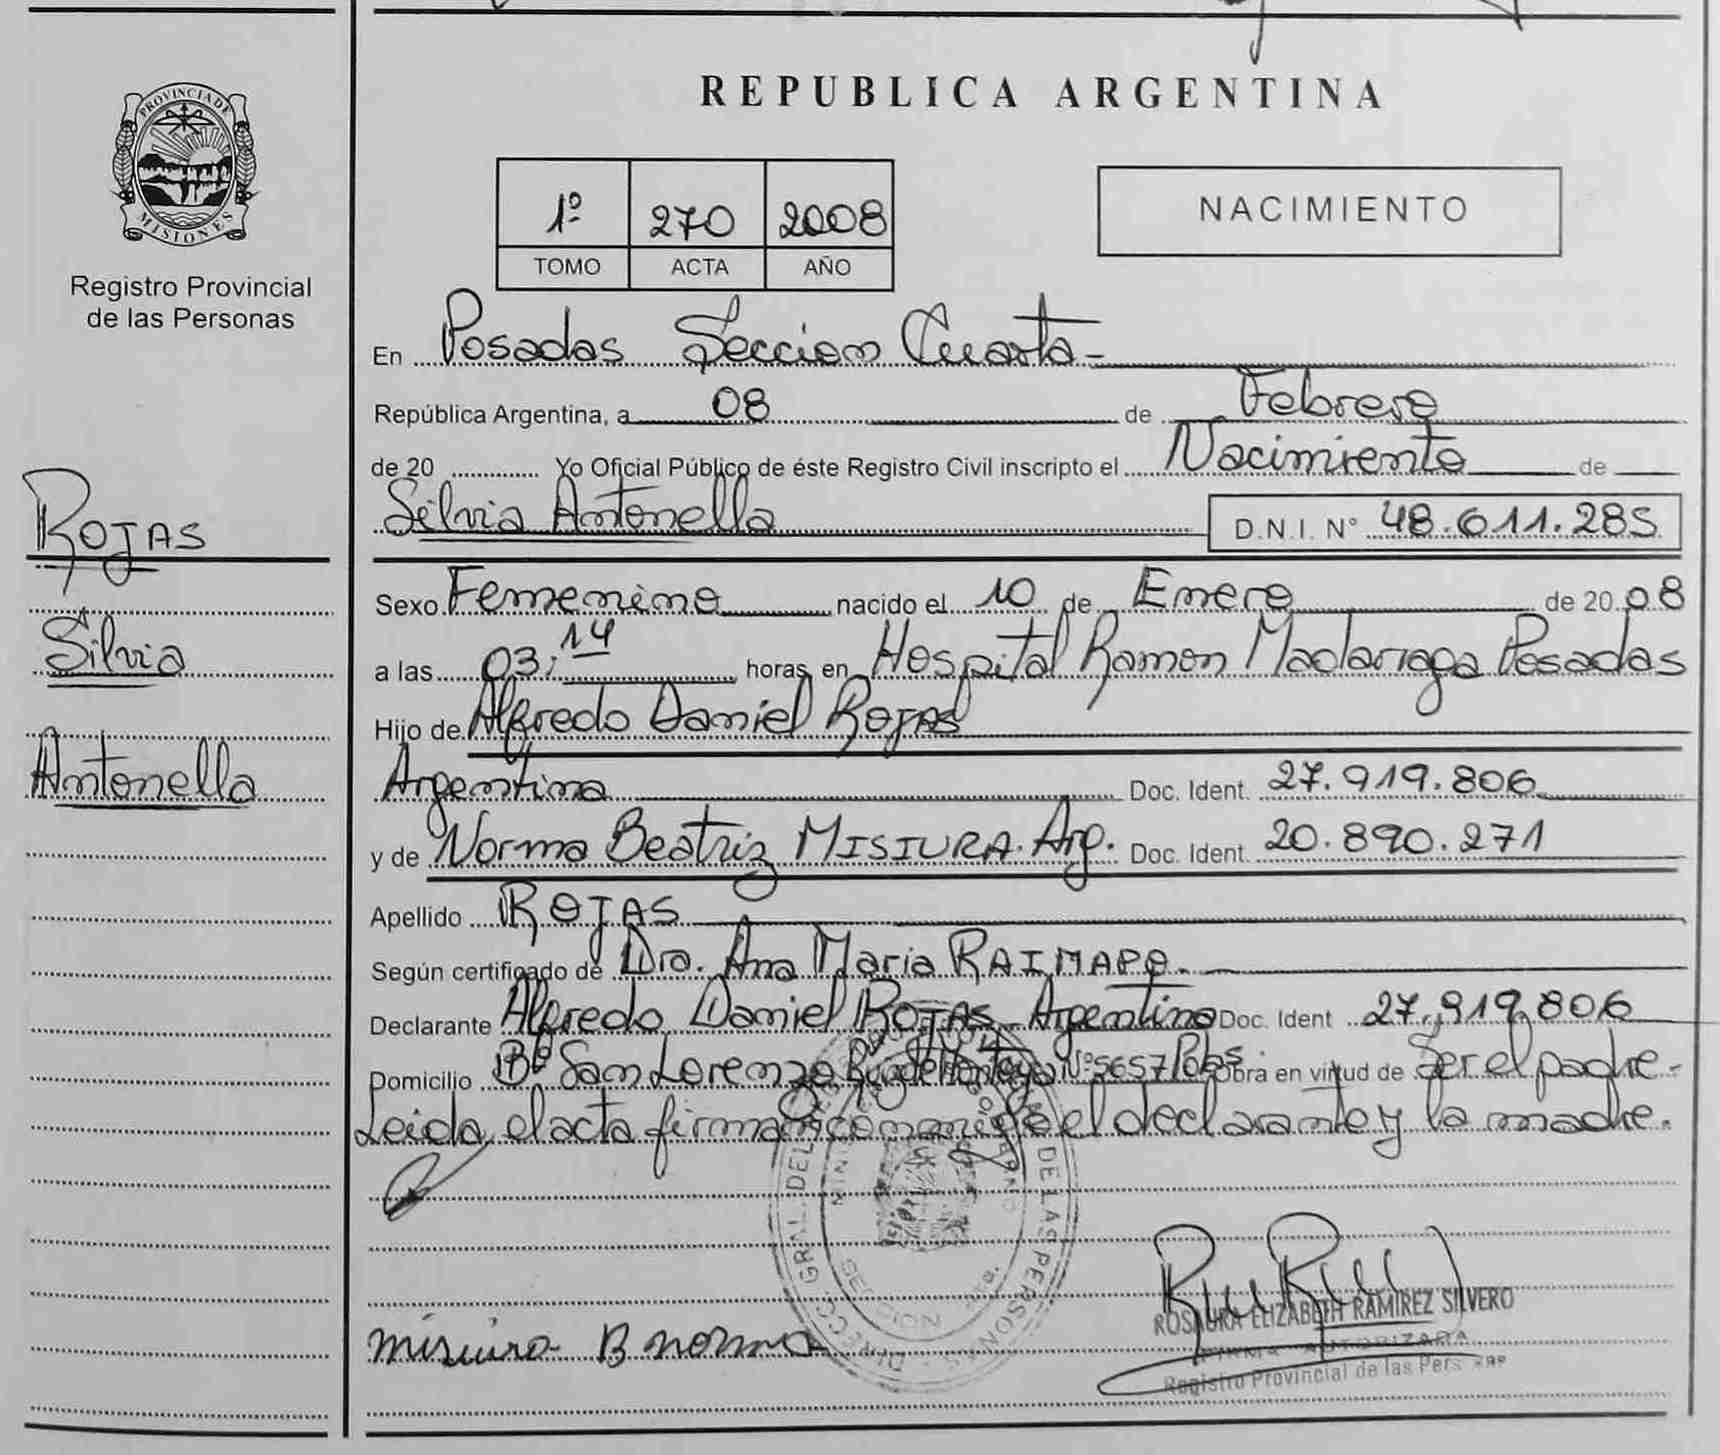 PROVINCIA DE
MISIONES
Registro Provincial
de las Personas
ROJAS
Silvia
Antonella
REPUBLICA ARGENTINA
1º 270 2008
TOMO ACTA AÑO
NACIMIENTO
En Posadas Seccion Cuarta-
República Argentina, a 08 de Febrero
de 20 Yo Oficial Público de éste Registro Civil inscripto el Nacimiento de
Silvia Antonella D.N.I. N° 48.611.285
Sexo Femenino nacido el 10 de Enero de 20 08
a las 03:14 horas en Hospital Ramon Madariaga Posadas
Hijo de Alfredo Daniel Rojas
Argentina Doc. Ident. 27.919.806
y de Norma Beatriz MISIURA. Arg. Doc. Ident. 20.890.271
Apellido ROJAS
Según certificado de Dra. Ana Maria
Declarante Alfredo Daniel ROJAS Argentino Doc. Ident 27.919.806
Domicilio Bº San Lorenzo Nº 5657 Obra en virtud de Ser el padre-
Leida el acta firman conmigo el declarante y la madre.
DIRECC. GRAL. DEL DE LAS PERSONAS
misiura B norma
ROSAURA ELIZABETH RAMIREZ SILVERO
FIRMA AUTORIZADA
Registro Provincial de las Personas